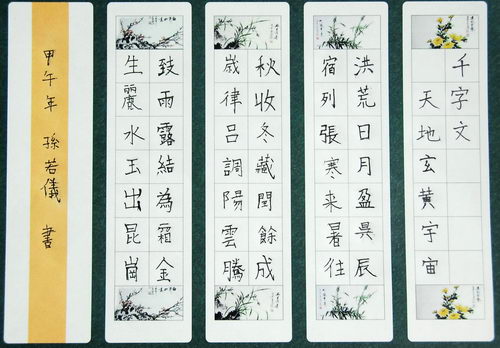 千字文
天地玄黃宇宙
洪荒日月盈昃辰
宿列張寒来暑往
秋收冬藏閏餘成
歲律呂調陽雲騰
致雨露結為霜金
生麗水玉出昆崗
甲午年 孫若儀 書